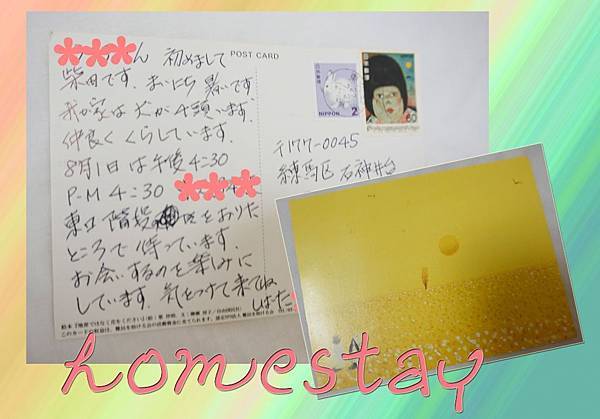 ん 初めまして
POST CARD
柴田です。まいにち 暑いです
我が家は犬が4頭います。
仲良くくらしています。
8月1日は午後4:30
P-M 4:30
東口 階段 をおりた
ところで待っています。
お会いするのを楽しみに
しています。気をつけて来てね
しばた
日本郵便
NIPPON 2
日本郵便
60
〒177-0045
練馬区 石神井台
homestay